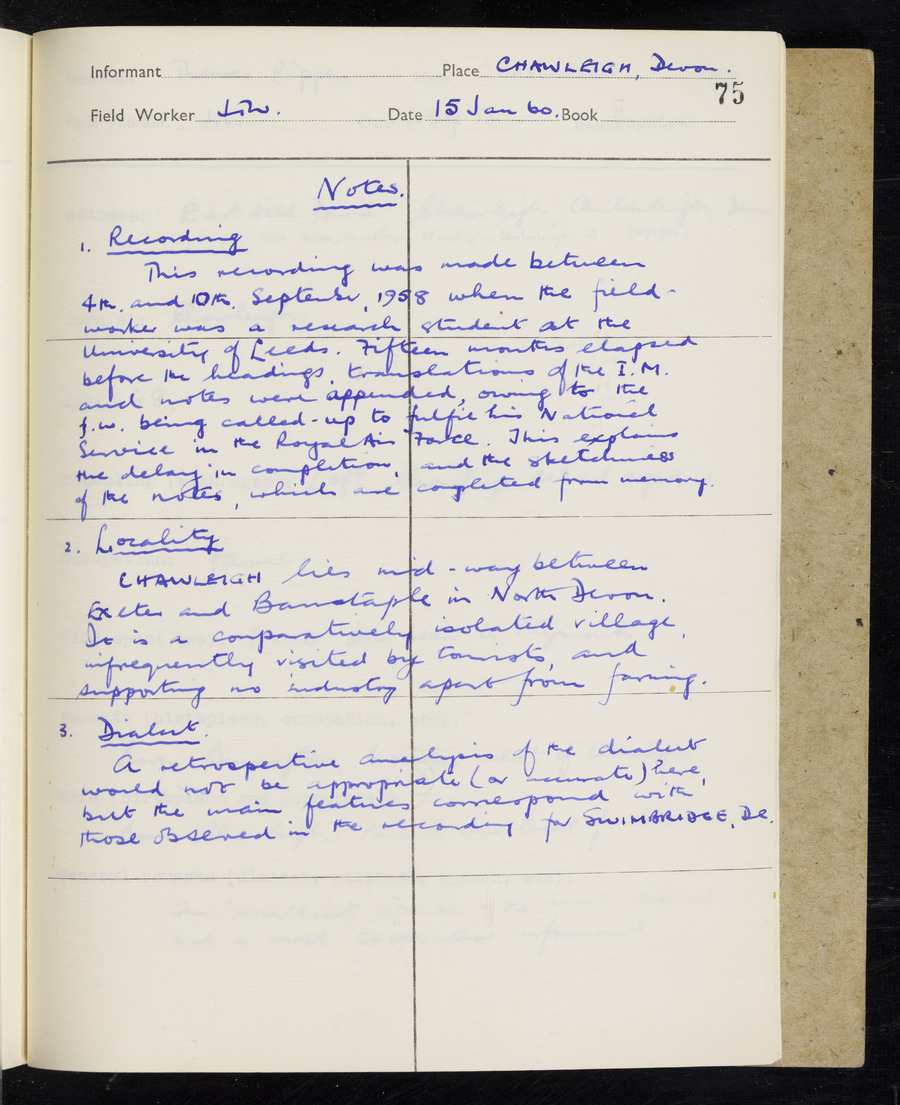 Informant Place CHAWLEIGH, Devon.
75
Field Worker J.W. Date 15 Jan 60. Book
Notes.
1. Recording
This recording was made between
4th. and 10th. September, 1958 when the field-
worker was a research student at the
University of Leeds. Fifteen months elapsed
before the headings, translations of the I.M.
and notes were appended, owing to the
f.w. being called-up to fulfil his National
Service in the Royal Air Force. This explains
the delay in completion, and the sketchiness
of the notes, which are completed from memory.
2. Locality
CHAWLEIGH lies mid-way between
Exeter and Barnstaple in North Devon.
It is a comparatively isolated village,
infrequently visited by tourists, and
supporting no industry apart from farming.
3. Dialect.
A retrospective analysis of the dialect
would not be appropriate (or accurate) here,
but the main features correspond with
those observed in the recording for SWIMBRIDGE, De.